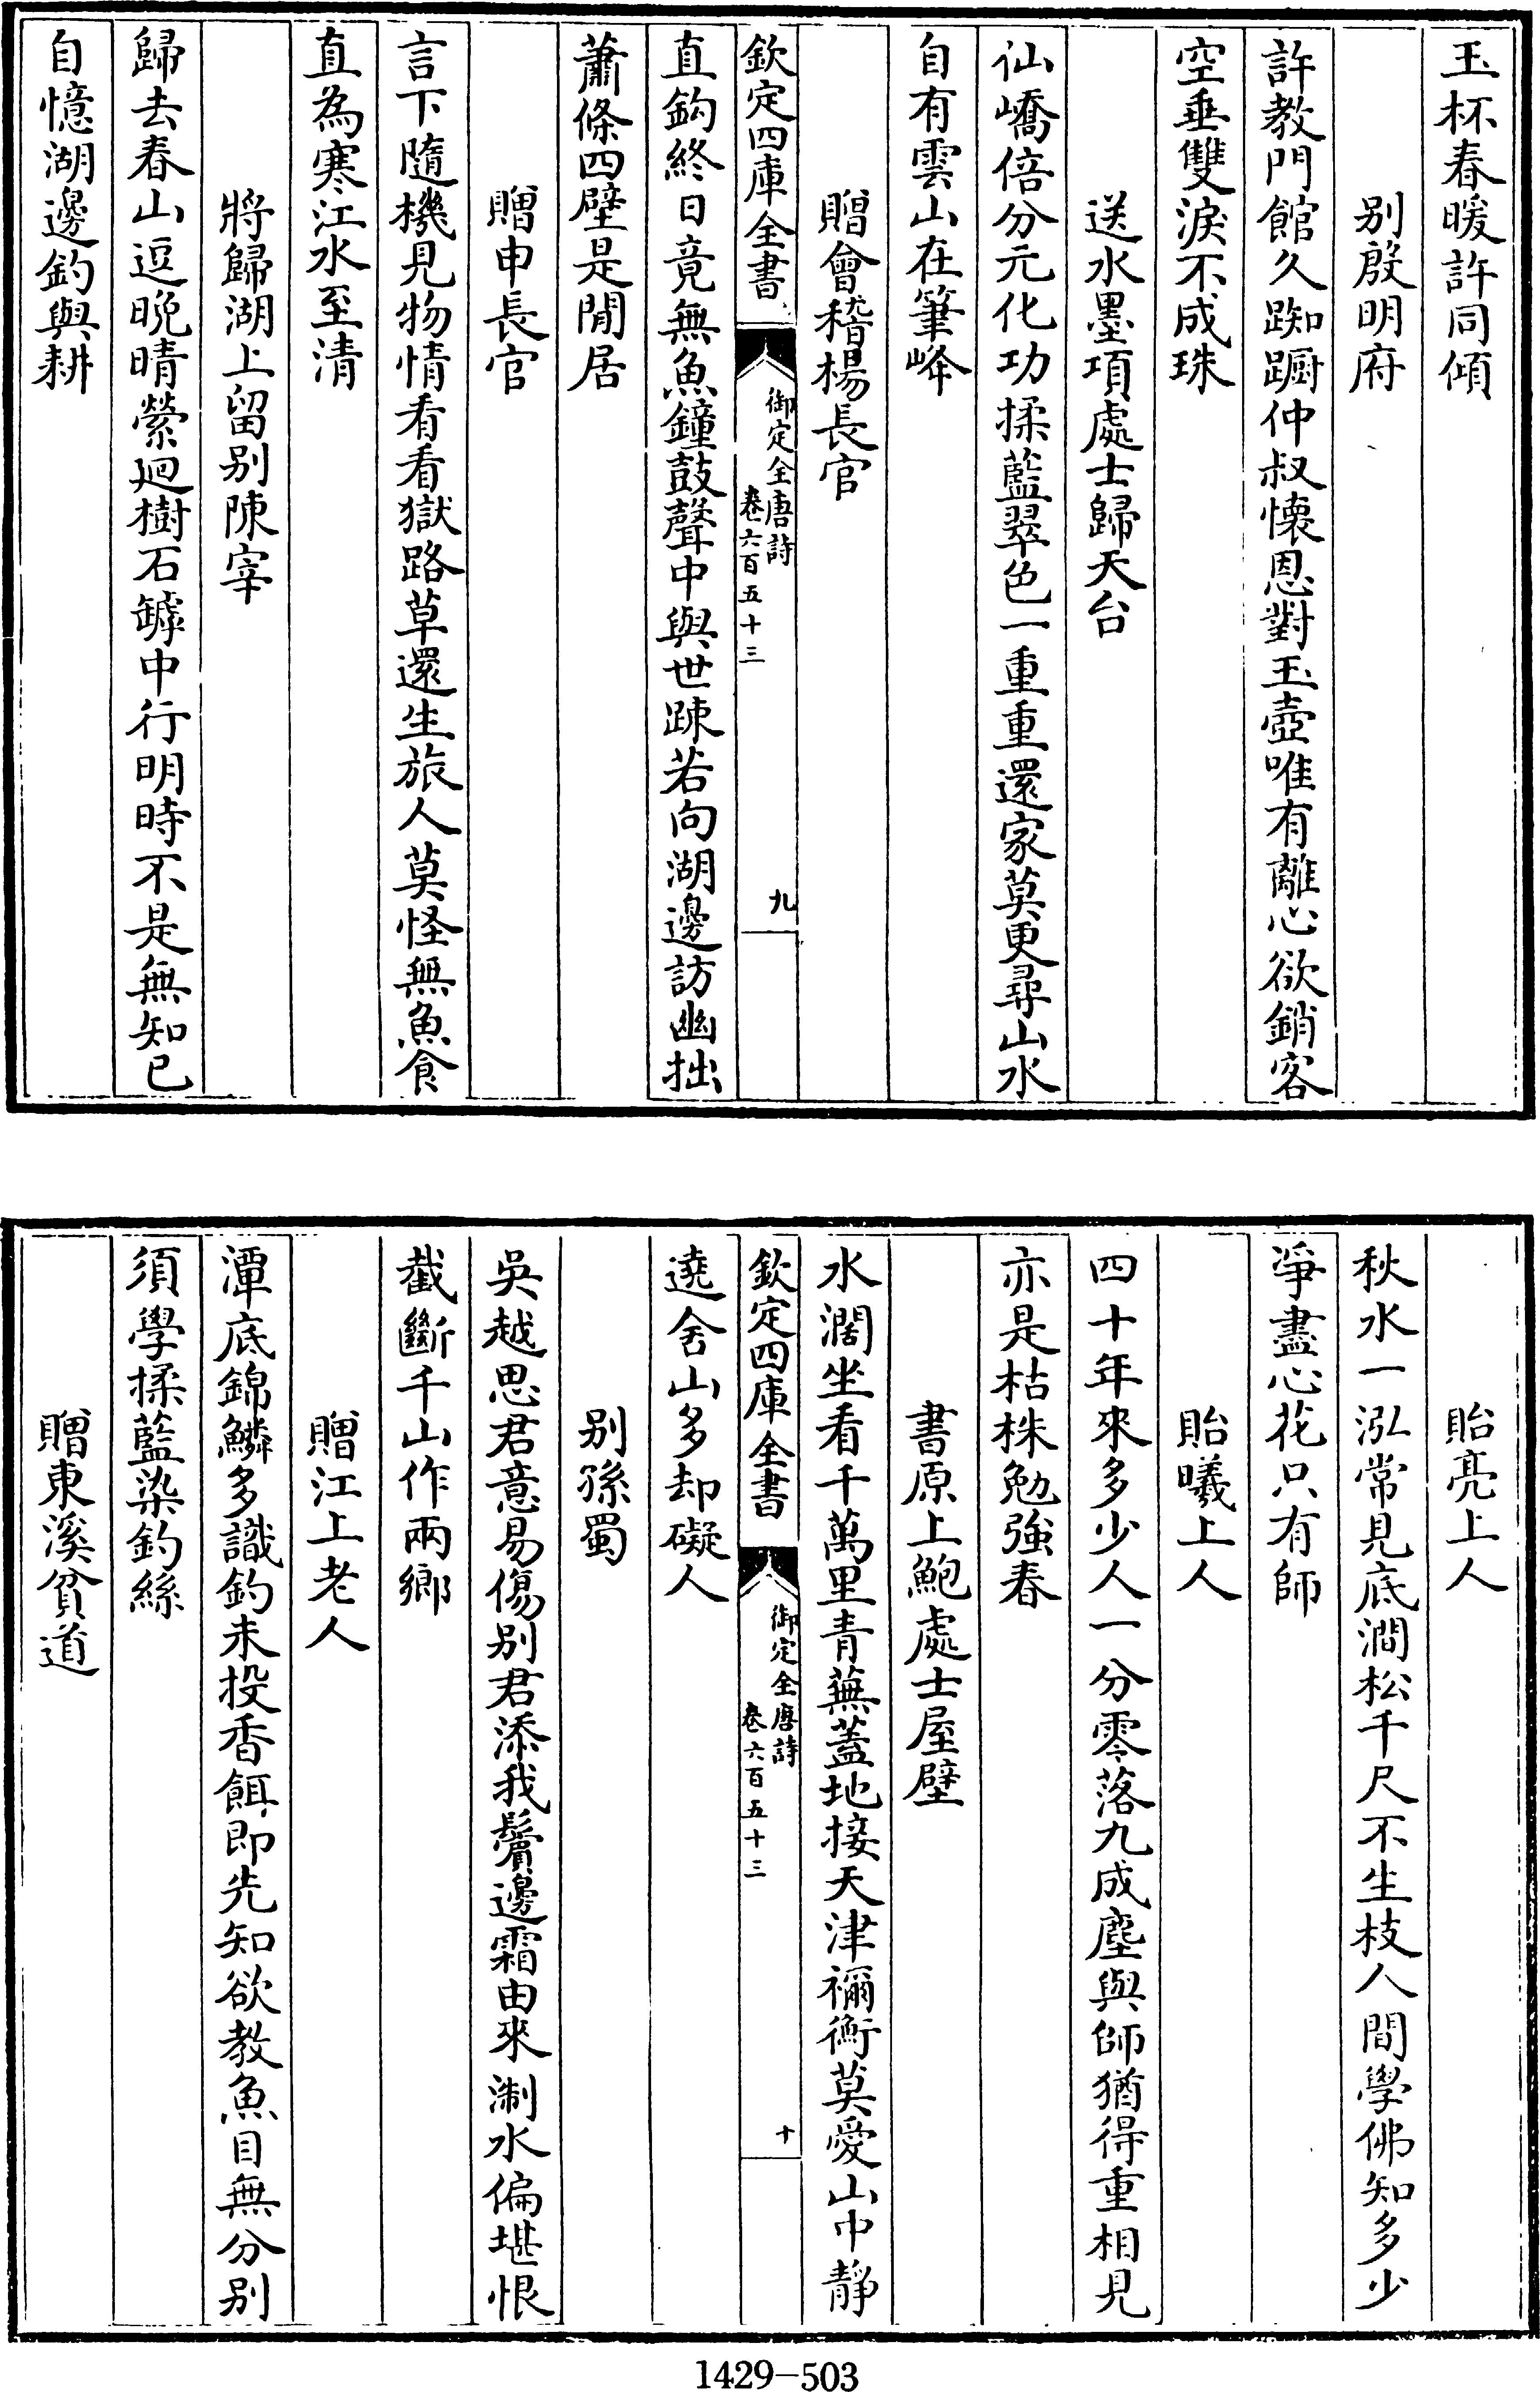 玉杯春暖許同傾
别殷明府
許教門館久踟蹰仲叔懐恩對玉壺唯有離心欲銷客
空垂雙淚不成珠
送水墨項處士歸天台
仙嶠倍分元化功揉藍翠色一重重還家莫更尋山水
自有雲山在筆峰
贈會稽楊長官
欽定四庫全書
御定全唐詩
卷六百五十三
九
直鈎終日竟無魚鐘鼓聲中與世踈若向湖邊訪幽拙
蕭條四壁是閒居
贈申長官
言下隨機見物情看看獄路草還生旅人莫怪無魚食
直為寒江水至清
將歸湖上留别陳宰
歸去春山逗晩晴縈廻樹石罅中行明時不是無知已
自憶湖邊釣與耕
貽亮上人
秋水一泓常見底澗松千尺不生枝人間學佛知多少
凈盡心花只有師
貽曦上人
四十年來多少人一分零落九成塵與師猶得重相見
亦是枯株勉強春
書原上鮑處士屋壁
水濶坐看千萬里青蕪蓋地接天津禰衡莫愛山中靜
遶舍山多却礙人
欽定四庫全書
御定全唐詩
卷六百五十三
十
别孫蜀
吳越思君意易傷别君添我鬢邊霜由來淛水偏堪恨
截斷千山作兩鄉
贈江上老人
潭底錦鱗多識釣未投香餌即先知欲教魚目無分别
須學揉藍染釣絲
贈東溪貧道
1429-503